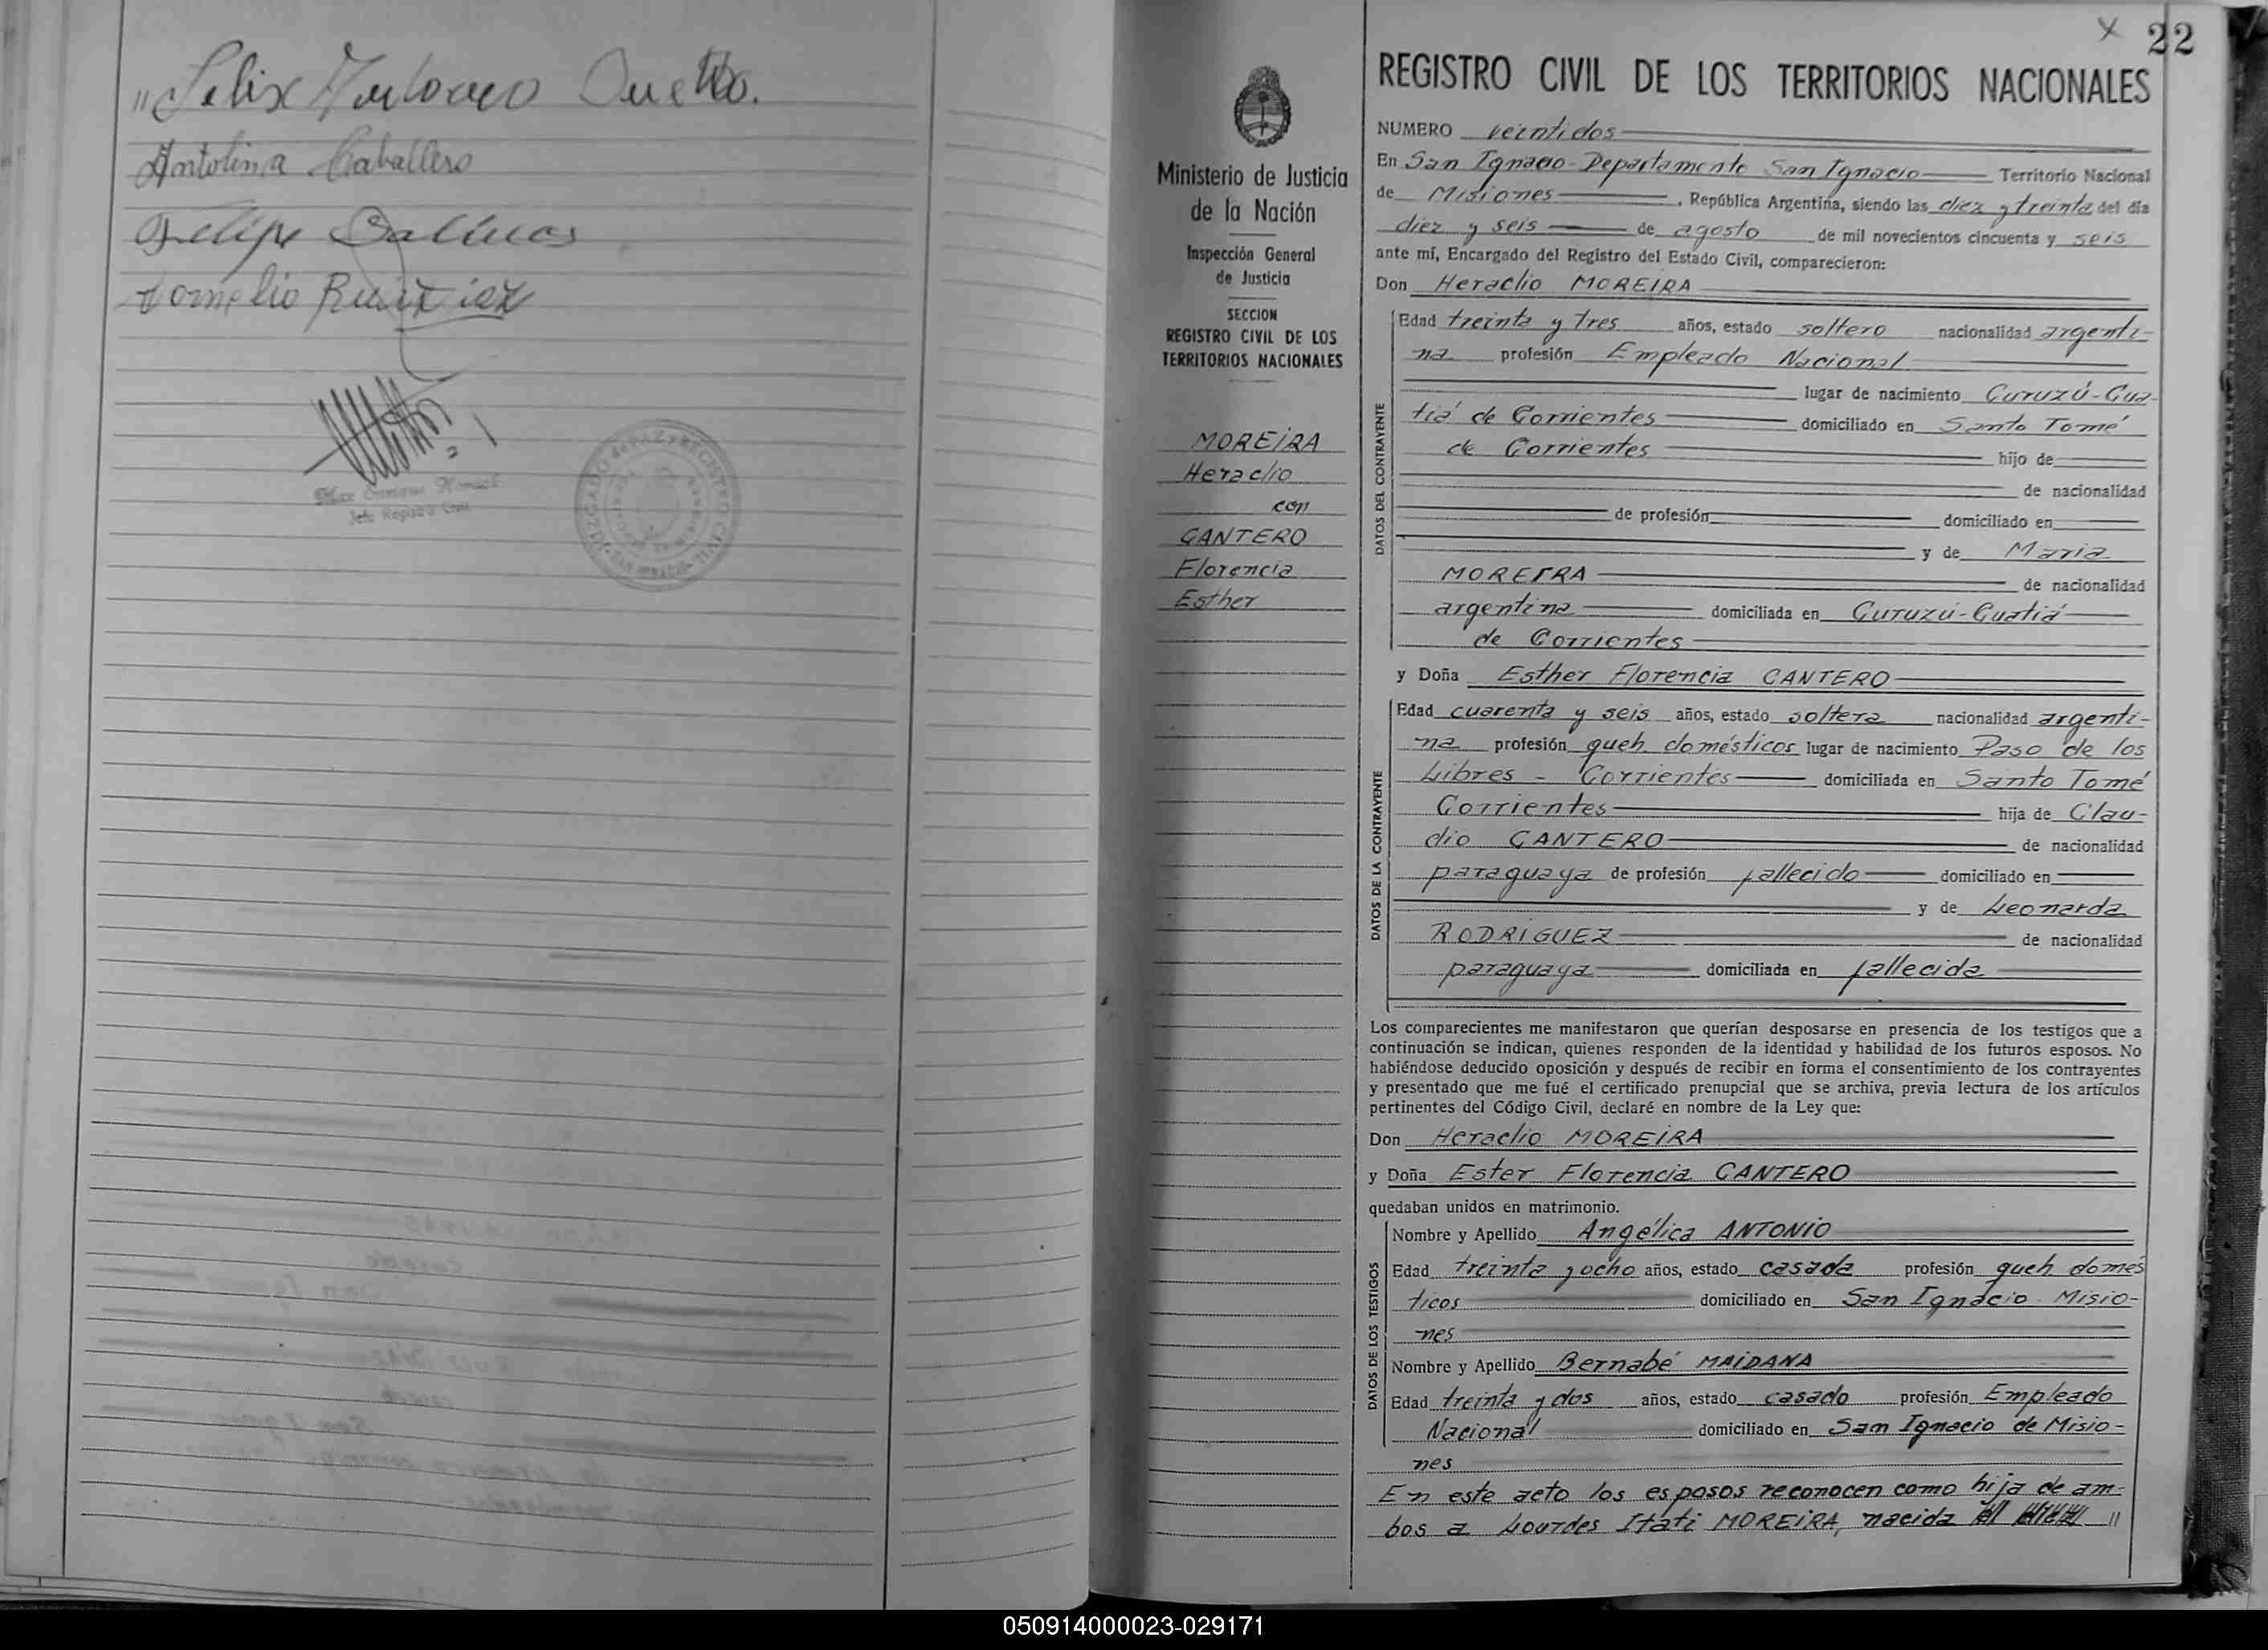 " Felix Antonio
Antolina Caballero
Felipe Salinas
Cornelio Ruiz Diaz
Jefe Registro Civil
JUZGADO de PAZ y REGISTRO CIVIL
SAN IGNACIO
X 22
Ministerio de Justicia
de la Nación
Inspección General
de Justicia
SECCION
REGISTRO CIVIL DE LOS
TERRITORIOS NACIONALES
MOREIRA
Heraclio
con
CANTERO
Florencia
Esther
REGISTRO CIVIL DE LOS TERRITORIOS NACIONALES
NUMERO veintidos
En San Ignacio - Departamento San Ignacio Territorio Nacional
de Misiones, República Argentina, siendo las diez y treinta del día
diez y seis de agosto de mil novecientos cincuenta y seis
ante mí, Encargado del Registro del Estado Civil, comparecieron:
Don Heraclio MOREIRA
DATOS DEL CONTRAYENTE
Edad treinta y tres años, estado soltero nacionalidad argenti-
na profesión Empleado Nacional
lugar de nacimiento Curuzú-Cua-
tiá de Corrientes domiciliado en Santo Tomé
de Corrientes hijo de
de nacionalidad
de profesión domiciliado en
y de Maria
MOREIRA de nacionalidad
argentina domiciliada en Curuzú-Cuatiá
de Corrientes
y Doña Esther Florencia CANTERO
DATOS DE LA CONTRAYENTE
Edad cuarenta y seis años, estado soltera nacionalidad argenti-
na profesión queh. domésticos lugar de nacimiento Paso de los
Libres - Corrientes domiciliada en Santo Tomé
Corrientes hija de Clau-
dio CANTERO de nacionalidad
paraguaya de profesión fallecido domiciliado en
y de Leonarda
RODRIGUEZ de nacionalidad
paraguaya domiciliada en fallecida
Los comparecientes me manifestaron que querían desposarse en presencia de los testigos que a
continuación se indican, quienes responden de la identidad y habilidad de los futuros esposos. No
habiéndose deducido oposición y después de recibir en forma el consentimiento de los contrayentes
y presentado que me fué el certificado prenupcial que se archiva, previa lectura de los artículos
pertinentes del Código Civil, declaré en nombre de la Ley que:
Don Heraclio MOREIRA
y Doña Ester Florencia CANTERO
quedaban unidos en matrimonio.
DATOS DE LOS TESTIGOS
Nombre y Apellido Angélica ANTONIO
Edad treinta y ocho años, estado casada profesión queh. domés
ticos domiciliado en San Ignacio - Misio-
nes
Nombre y Apellido Bernabé MAIDANA
Edad treinta y dos años, estado casado profesión Empleado
Nacional domiciliado en San Ignacio de Misio-
nes
En este acto los esposos reconocen como hija de am-
bos a Lourdes Itati MOREIRA, nacida el "
050914000023-029171